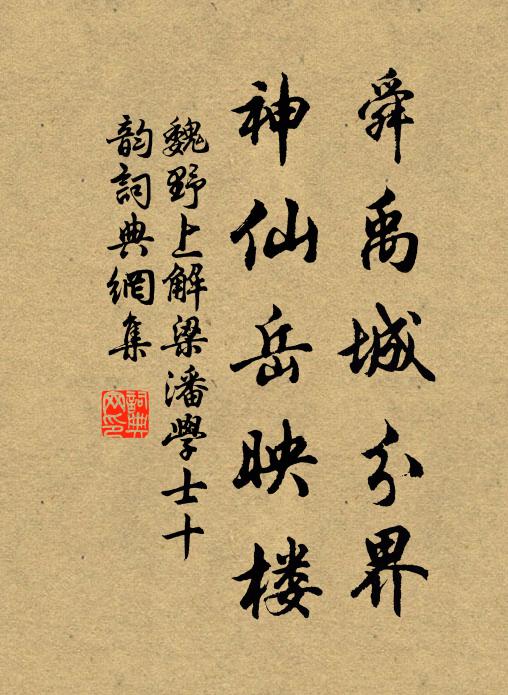 舜禹城分界
神仙岳映楼
魏野上解梁潘學士十
韵詞典網集
詞典网印